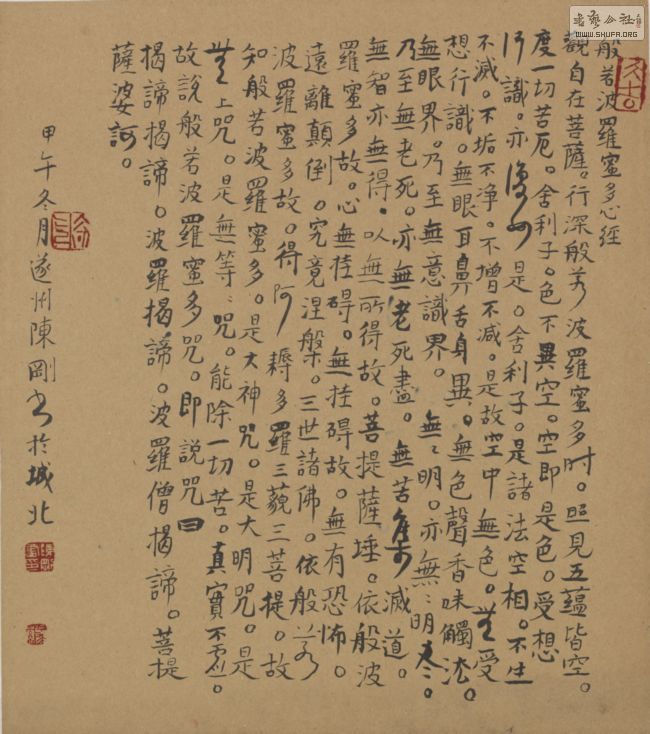 般若波羅蜜多心經
觀自在菩薩。行深般若波羅蜜多时。照見五蘊皆空。
度一切苦厄。舍利子。色不異空。空即是色。受想
行識。亦復如是。舍利子。是諸法空相。不生
不滅。不垢不净。不增不減。是故空中無色。无受
想行識。無眼耳鼻舌身異。無色聲香味觸法。
無眼界。乃至無意識界。無〻明。亦無〻明
乃至無老死。亦無老死盡。無苦集滅道。
無智亦無得。以無所得故。菩提薩埵。依般波
羅蜜多故。心無挂碍。無挂碍故。無有恐怖。
遠離顛倒。究竟涅槃。三世諸佛。依般若
波羅蜜多故。得阿耨多羅三藐三菩提。故
知般若波羅蜜多。是大神咒。是大明咒。是
无上咒。是無等〻咒。能除一切苦。真實不虛。
故說般若波羅蜜多咒。即說咒曰
揭諦揭諦。波羅揭諦。波羅僧揭諦。菩提
薩婆訶。
甲午冬月遂州陳剛書於城北
WWW.SHUFA.ORG